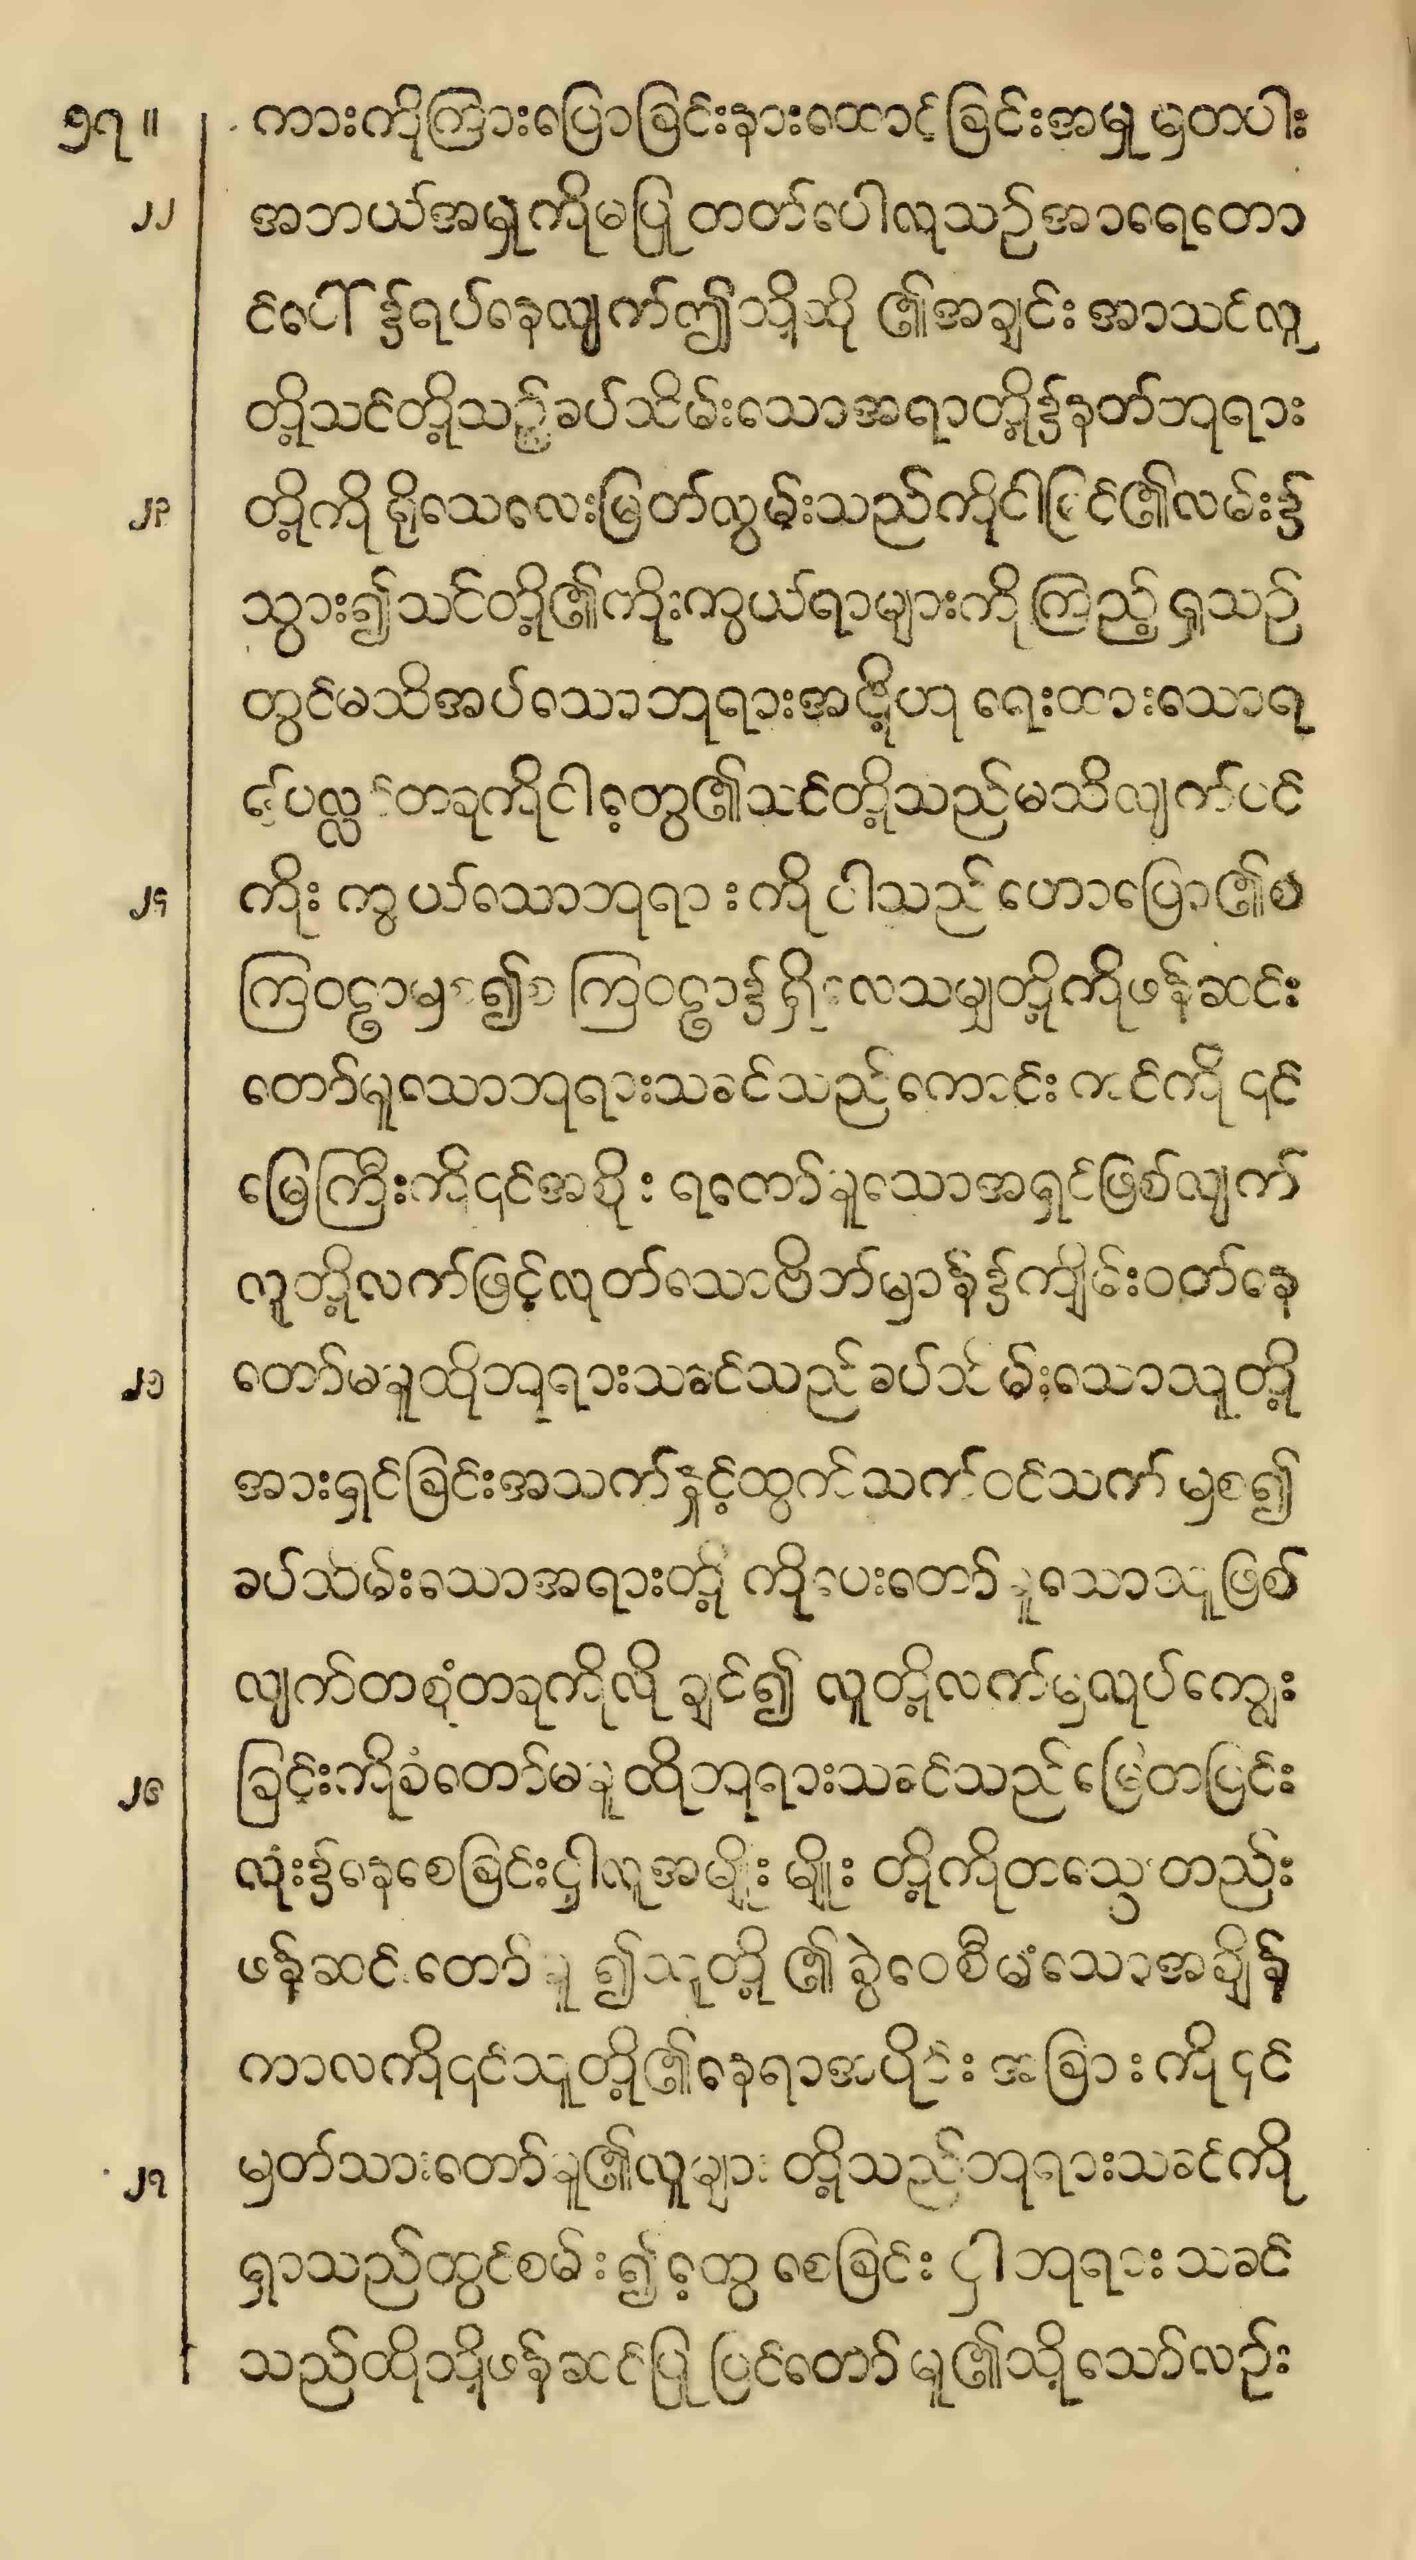 ၁၇။ ကားကိုကြားပြောခြင်းနားထောင်ခြင်းအမှုမှတပါး
၂၂ အဘယ်အမှုကိုမပြုတတ်ပေါလုသဉ်အာရေတော
င်ပေါ်၌ရပ်နေလျက်ဤသို့ဆို၏အချင်းအာသင်လူ
တို့သင်တို့သည်ခပ်သိမ်းသောအရာတို့၌နတ်ဘုရား
၂၃ တို့ကိုရိုသေလေးမြတ်လွမ်းသည်ကိုငါမြင်၏လမ်း၌
သွား၍သင်တို့၏ကိုးကွယ်ရာများကိုကြည့်ရှုသဉ်
တွင်မသိအပ်သောဘုရားအဋို့ဟုရေးထားသောရ
ဇ်ပလ္လင်တခုကိုငါတွေ့၏သင်တို့သည်မသိလျက်ပင်
၂၄ ကိုးကွယ်သောဘုရားကိုငါသည်ဟောပြော၏စ
ကြဝဠာမှစ၍စကြဝဠာ၌ရှိလေသမျှတို့ကိုဖန်ဆင်း
တော်မူသောဘုရားသခင်သည်ကောင်းကင်ကို၎င်
မြေကြီးကို၎င်အစိုးရတော်မူသောအရှင်ဖြစ်လျက်
လူတို့လက်ဖြင့်လုတ်သောဗိဘ်မှာန်၌ကျိမ်းဝတ်နေ
၂၅ တော်မမူထိုဘုရားသခင်သည်ခပ်သိမ်းသောသူတို့
အားရှင်ခြင်းအသက်နှင့်ထွက်သက်ဝင်သက်မှစ၍
ခပ်သိမ်းသောအရားတို့ကိုပေးတော်မူသောသူဖြစ်
လျက်တစုံတခုကိုလိုချင်၍လူတို့လက်မှလုပ်ကျွေး
၂၆ ခြင်းကိုခံတော်မမူထိုဘုရားသခင်သည်မြေတပြင်း
လုံး၌နေစေခြင်းငှါလူအမျိုးမျိုးတို့ကိုတသွေးတည်း
ဖန်ဆင်းတော်မူ၍သူတို့၏ခွဲဝေစီမံသောအချိန်
ကာလကို၎င်သူတို့၏နေရာအပိုင်းအခြားကို၎င်
၂၇ မှတ်သားတော်မူ၏လူများတို့သည်ဘုရားသခင်ကို
ရှာသည်တွင်စမ်း၍တွေ့စေခြင်းငှါဘုရားသခင်
သည်ထိုသို့ဖန်ဆင်ပြုပြင်တော်မူ၏သို့သော်လဉ်း